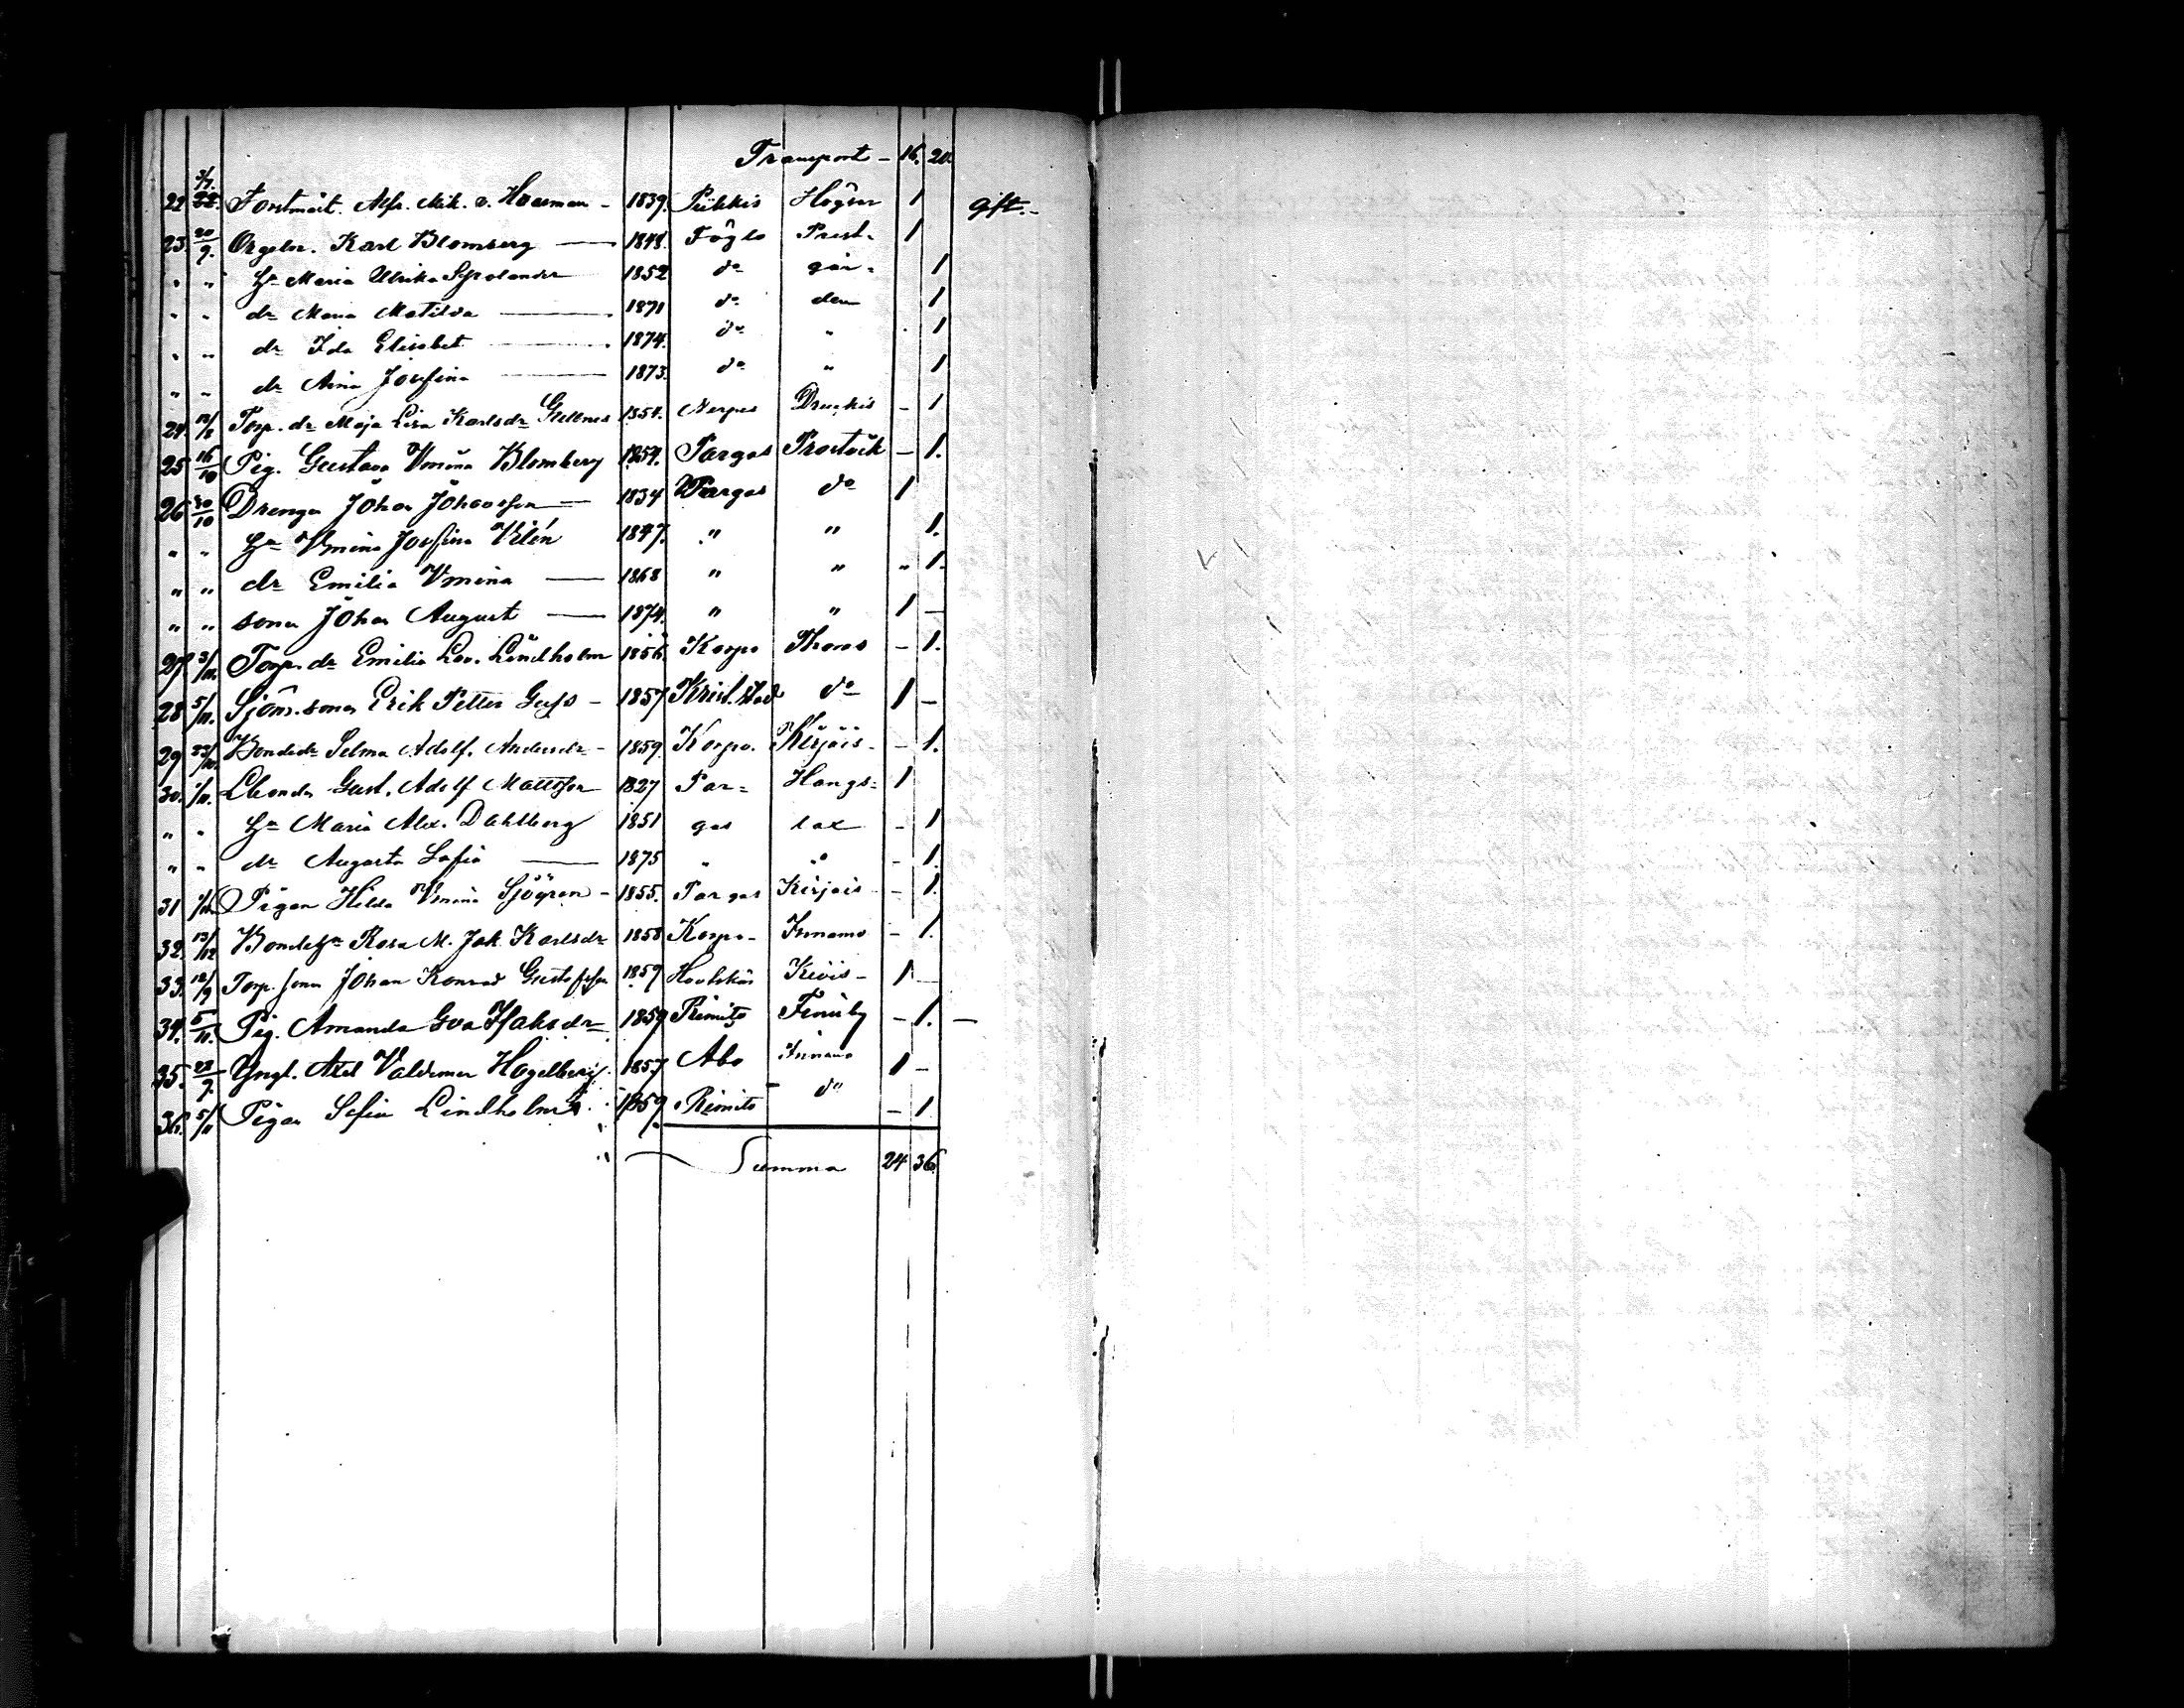 Transport - 16. 20.
22 3/7. Forstmäst. Alfr. Mik. v. Haartman - 1839. Pikkis Högsar 1 gift. -
23. 20/9. Orgeln. Karl Blomberg — 1848. Föglö Prest- 1
" " Hu Maria Ulrika 1852 do går- 1
" " dr Maria Matilda — 1871 do den 1
" " dr Ida Elisabet — 1874. do " 1
" " dr Aina Josefina — 1873. do " 1
24. Torp. dr Maja Lisa Karlsdr 1854. Nerpes - 1
25 16/10 Pig. Gustava Vmina Blomberg 1859. Pargas Prostvik - 1.
26 30/10 Drengn Johan Johansson — 1834 Pargas do 1
" " Hu Vmina Josefina Vilén 1847. " " 1.
" " dr Emilia Vmina — 1868 " " " 1.
" " sonen Johan August — 1874. " " 1 -
27. 3/11. Torp. dr Emilia Lov. Lindholm 1856. Korpo - 1.
28 5/11. Sjöm. sonen Erik Petter 1857 Krist.stad do 1 -
29 Bondedr Selma Adolf. Andersdr - 1859. Korpo. Kirjais - - 1.
30. 1/11. Gust. Adolf Mattsson 1827 Par- Hangs- 1
" " Hu Maria Alex. Dahlberg 1851 gas lax - 1
" " dr Augusta Sofia — 1875 " " - 1.
31 Pigan Hilda Vmina Sjögren - 1855. Pargas Kirjais - 1.
32. 13/12 Rosa M. Jak. Karlsdr 1858 Korpo - Innamo - 1.
33. 12/9 Torp. sonen Johan Konrad Gustafsson 1859 Houtskär - 1 -
34. 5/11. Pig. Amanda Eva Isaksdr 1859 Rimito Finnby - 1. —
35. 22/9. Yngl. Axel Valdemar Hagelberg. 1857 Åbo Innamo 1 -
36. 5/11 Pigan Sofia Lindholm 1859. Rimito do - 1
Summa 24 36.